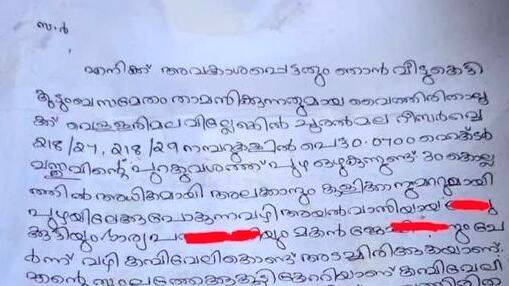 സർ
എനിക്ക് അവകാശപ്പെട്ടതും ഞാൻ വീടുകെട്ടി
കുടുംബസമേതം താമസിക്കുന്നതുമായ വൈത്തിരിതാലൂ
ക്ക് വെള്ളരിമല വില്ലേജിൽ ചൂരൽമല റീസർവ്വെ
218/27, 218/29 നമ്പറുകളിൽ പെട്ട 0.0700 ഹെക്ടർ
വസ്തുവിന്റെ പുറകുവശത്ത് പുഴ ഒഴുകുന്നുണ്ട് 30 കൊല്ല
ത്തിൽ അധികമായി അലക്കാനും കുളിക്കാനുമറ്റുമായി
പുഴയിലേക്കു പോകുന്നവഴി അയൽവാസിയായ
കുട്ടിയും ഭാര്യ യും മകൻ നും ചേ
ർന്ന് വഴി കമ്പിവേലികൊണ്ട് അടച്ചിരിക്കുകയാണ്.
എന്റെ സ്ഥലത്തേക്കുകൂട്ടി കേറിയാണ് കമ്പിവേലി